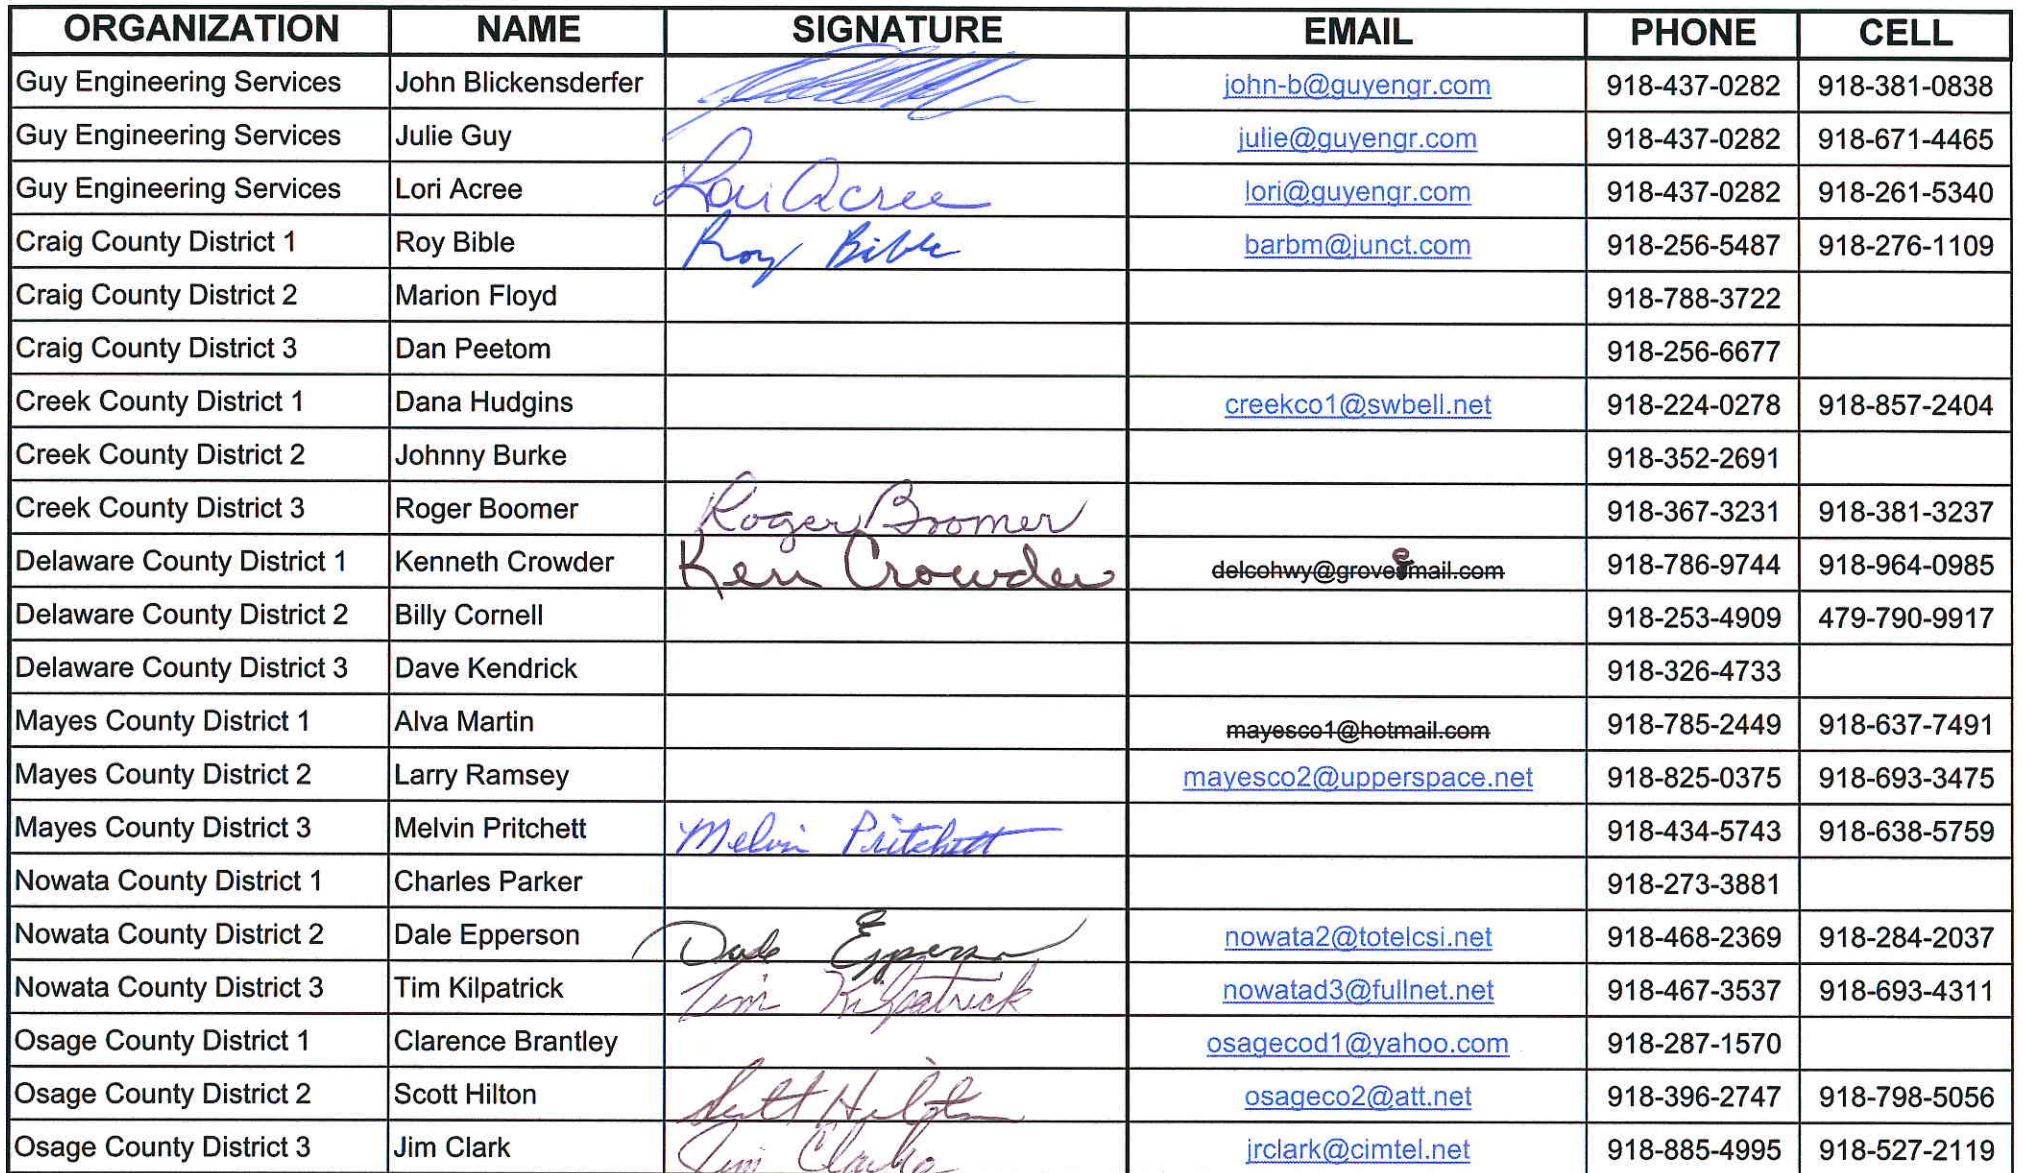 ORGANIZATION NAME SIGNATURE EMAIL PHONE CELL
Guy Engineering Services John Blickensderfer john-b@guyengr.com 918-437-0282 918-381-0838
Guy Engineering Services Julie Guy julie@guyengr.com 918-437-0282 918-671-4465
Guy Engineering Services Lori Acree Lori Acree lori@guyengr.com 918-437-0282 918-261-5340
Craig County District 1 Roy Bible Roy Bible barbm@junct.com 918-256-5487 918-276-1109
Craig County District 2 Marion Floyd 918-788-3722
Craig County District 3 Dan Peetom 918-256-6677
Creek County District 1 Dana Hudgins creekco1@swbell.net 918-224-0278 918-857-2404
Creek County District 2 Johnny Burke 918-352-2691
Creek County District 3 Roger Boomer Roger Boomer 918-367-3231 918-381-3237
Delaware County District 1 Kenneth Crowder Ken Crowder 918-786-9744 918-964-0985
Delaware County District 2 Billy Cornell 918-253-4909 479-790-9917
Delaware County District 3 Dave Kendrick 918-326-4733
Mayes County District 1 Alva Martin mayesco1@hotmail.com 918-785-2449 918-637-7491
Mayes County District 2 Larry Ramsey mayesco2@upperspace.net 918-825-0375 918-693-3475
Mayes County District 3 Melvin Pritchett Melvin Pritchett 918-434-5743 918-638-5759
Nowata County District 1 Charles Parker 918-273-3881
Nowata County District 2 Dale Epperson Dale Epperson nowata2@totelcsi.net 918-468-2369 918-284-2037
Nowata County District 3 Tim Kilpatrick Tim Kilpatrick nowatad3@fullnet.net 918-467-3537 918-693-4311
Osage County District 1 Clarence Brantley osagecod1@yahoo.com 918-287-1570
Osage County District 2 Scott Hilton Scott Hilton osageco2@att.net 918-396-2747 918-798-5056
Osage County District 3 Jim Clark Jim Clark jrclark@cimtel.net 918-885-4995 918-527-2119